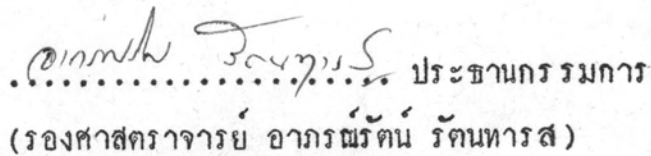 ........................ ประธานกรรมการ
(รองศาสตราจารย์ อาภรณ์รัตน์ รัตนหารส)